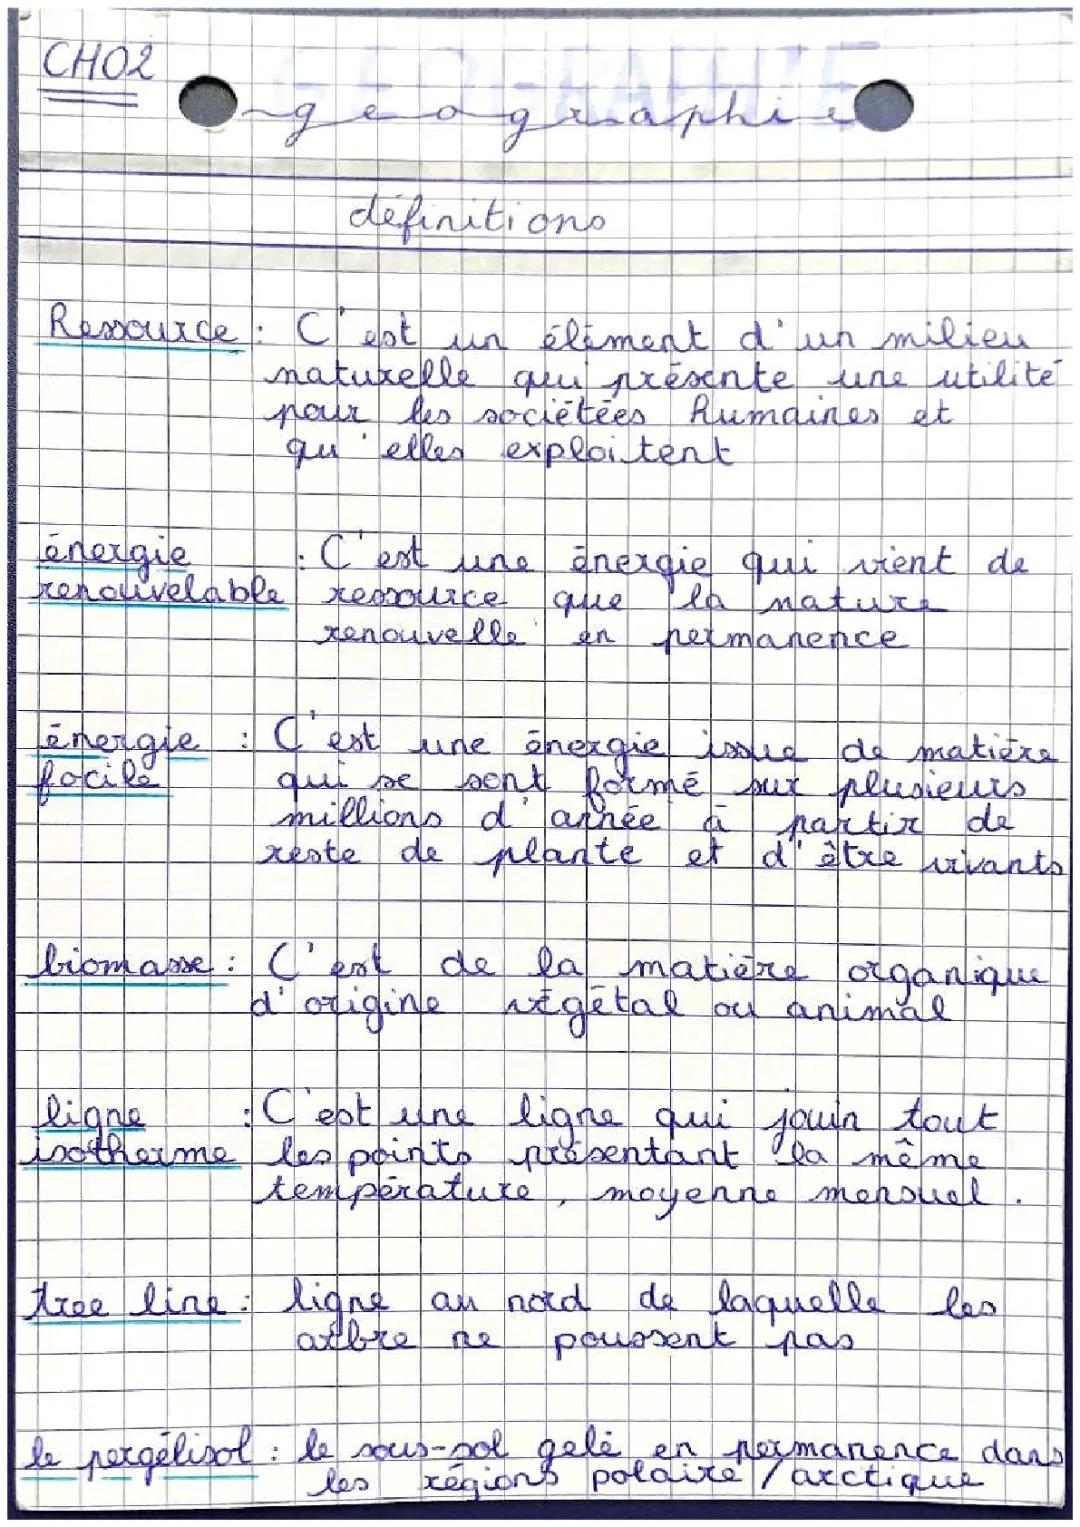 CH02
GEOGRAPHIE
géographie
définitions
Ressource : C'est un élément d'un milieu
naturelle qui présente une utilité
pour les sociétées humaines et
qu'elles exploitent
énergie : C'est une énergie qui vient de
renouvelable ressource que la nature
renouvelle en permanence
énergie : C'est une énergie issue de matière
focile qui se sont formé sur plusieurs
millions d'année à partir de
reste de plante et d'être vivants
biomasse : C'est de la matière organique
d'origine végétal ou animal
ligne : C'est une ligne qui jouin tout
isotherme les points présentant la même
température, moyenne mensuel.
tree line : ligne au nord de laquelle les
arbre ne poussent pas
le pergélisol : le sous-sol gelé en permanence dans
les régions polaire / arctique